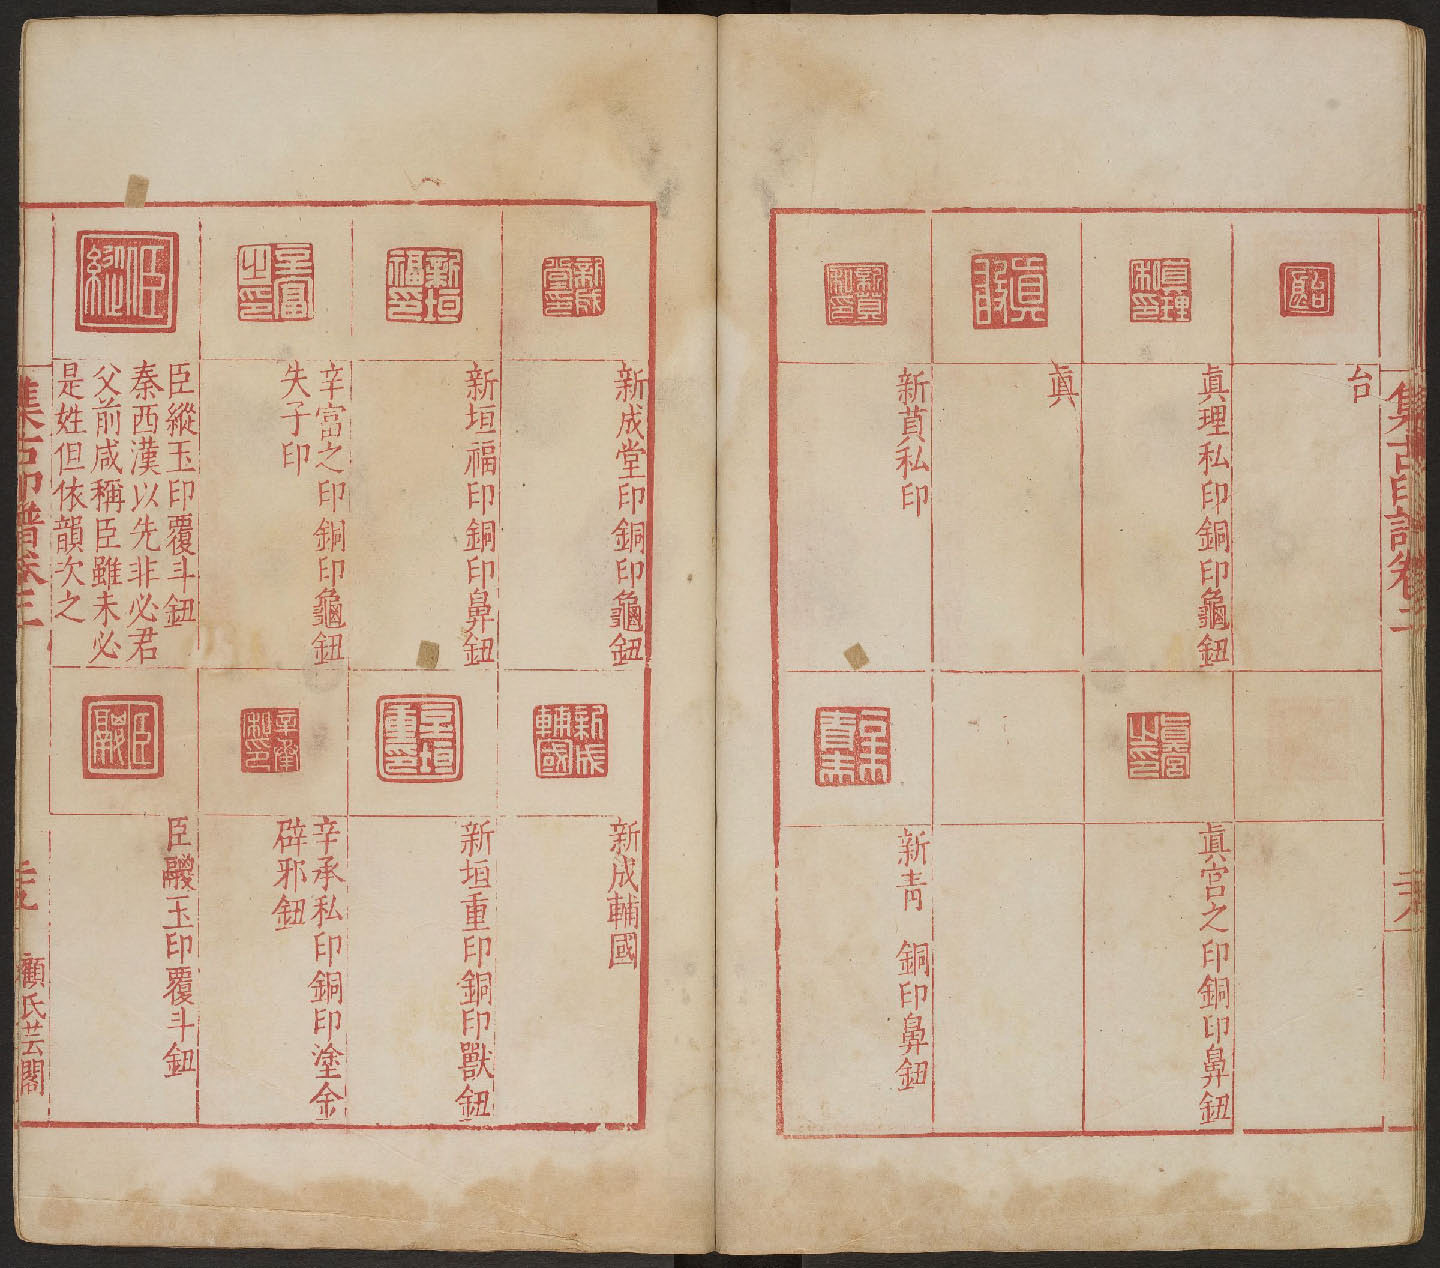 集古印譜卷二
二十八
台
眞理私印銅印龜鈕
眞
新萯私印
眞宮之印銅印鼻鈕
新靑 銅印鼻鈕
新成堂印銅印龜鈕
新垣福印銅印鼻鈕
辛富之印銅印龜鈕
失子印
臣縱玉印覆斗鈕
秦西漢以先非必君
父前咸稱臣雖未必
是姓但依韻次之
新成輔國
新垣重印銅印獸鈕
辛承私印銅印塗金
辟邪鈕
臣䶬玉印覆斗鈕
集古印譜卷二
二十九
顧氏芸閣